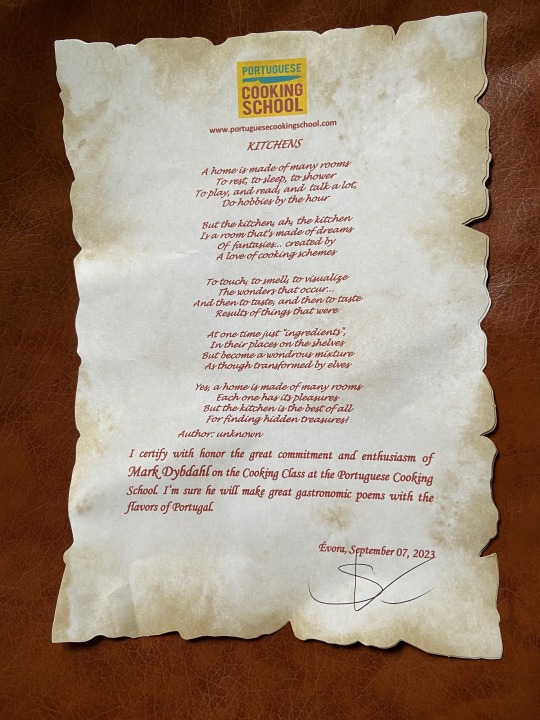 PORTUGUESE
COOKING
SCHOOL
www.portuguesecookingschool.com
KITCHENS
A home is made of many rooms
To rest, to sleep, to shower
To play, and read, and talk a lot,
Do hobbies by the hour
But the kitchen, ah, the kitchen
Is a room that's made of dreams
Of fantasies... created by
A love of cooking schemes
To touch, to smell, to visualize
The wonders that occur...
And then to taste, and then to taste
Results of things that were
At one time just "ingredients",
In their places on the shelves
But become a wondrous mixture
As though transformed by elves
Yes, a home is made of many rooms
Each one has its pleasures
But the kitchen is the best of all
For finding hidden treasures!
Author: unknown
I certify with honor the great commitment and enthusiasm of
Mark Dybdahl on the Cooking Class at the Portuguese Cooking
School. I'm sure he will make great gastronomic poems with the
flavors of Portugal.
Évora, September 07, 2023